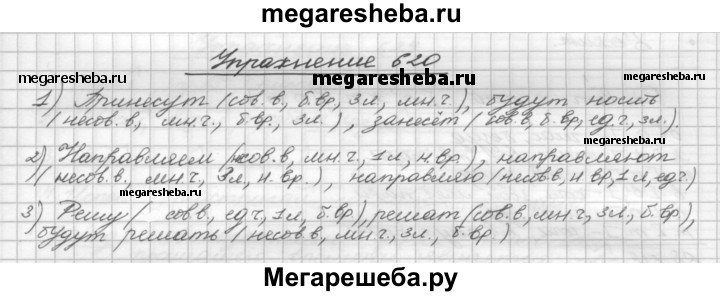 megaresheba.ru
Упражнение 620
megaresheba.ru megaresheba.ru
1) Принесут (сов. в, б. вр, 3л, мн. ч.), будут носить
(несов. в, мн. ч., б. вр., 3л.), занесёт (сов. в, б. вр, ед. ч, 3л.).
2) Направляем (несов. в, мн. ч, 1л, н. вр.), направляют
(несов. в, мн. ч, 3л, н. вр.), направляю (несов в, н вр, 1л, ед. ч)
megaresheba.ru megaresheba.ru
3) Решу (сов в, ед ч, 1л, б. вр), решат (сов. в, мн ч, 3л, б. вр),
будут решать (несов. в, мн. ч., 3л, б. вр)
Мегарешеба.ру